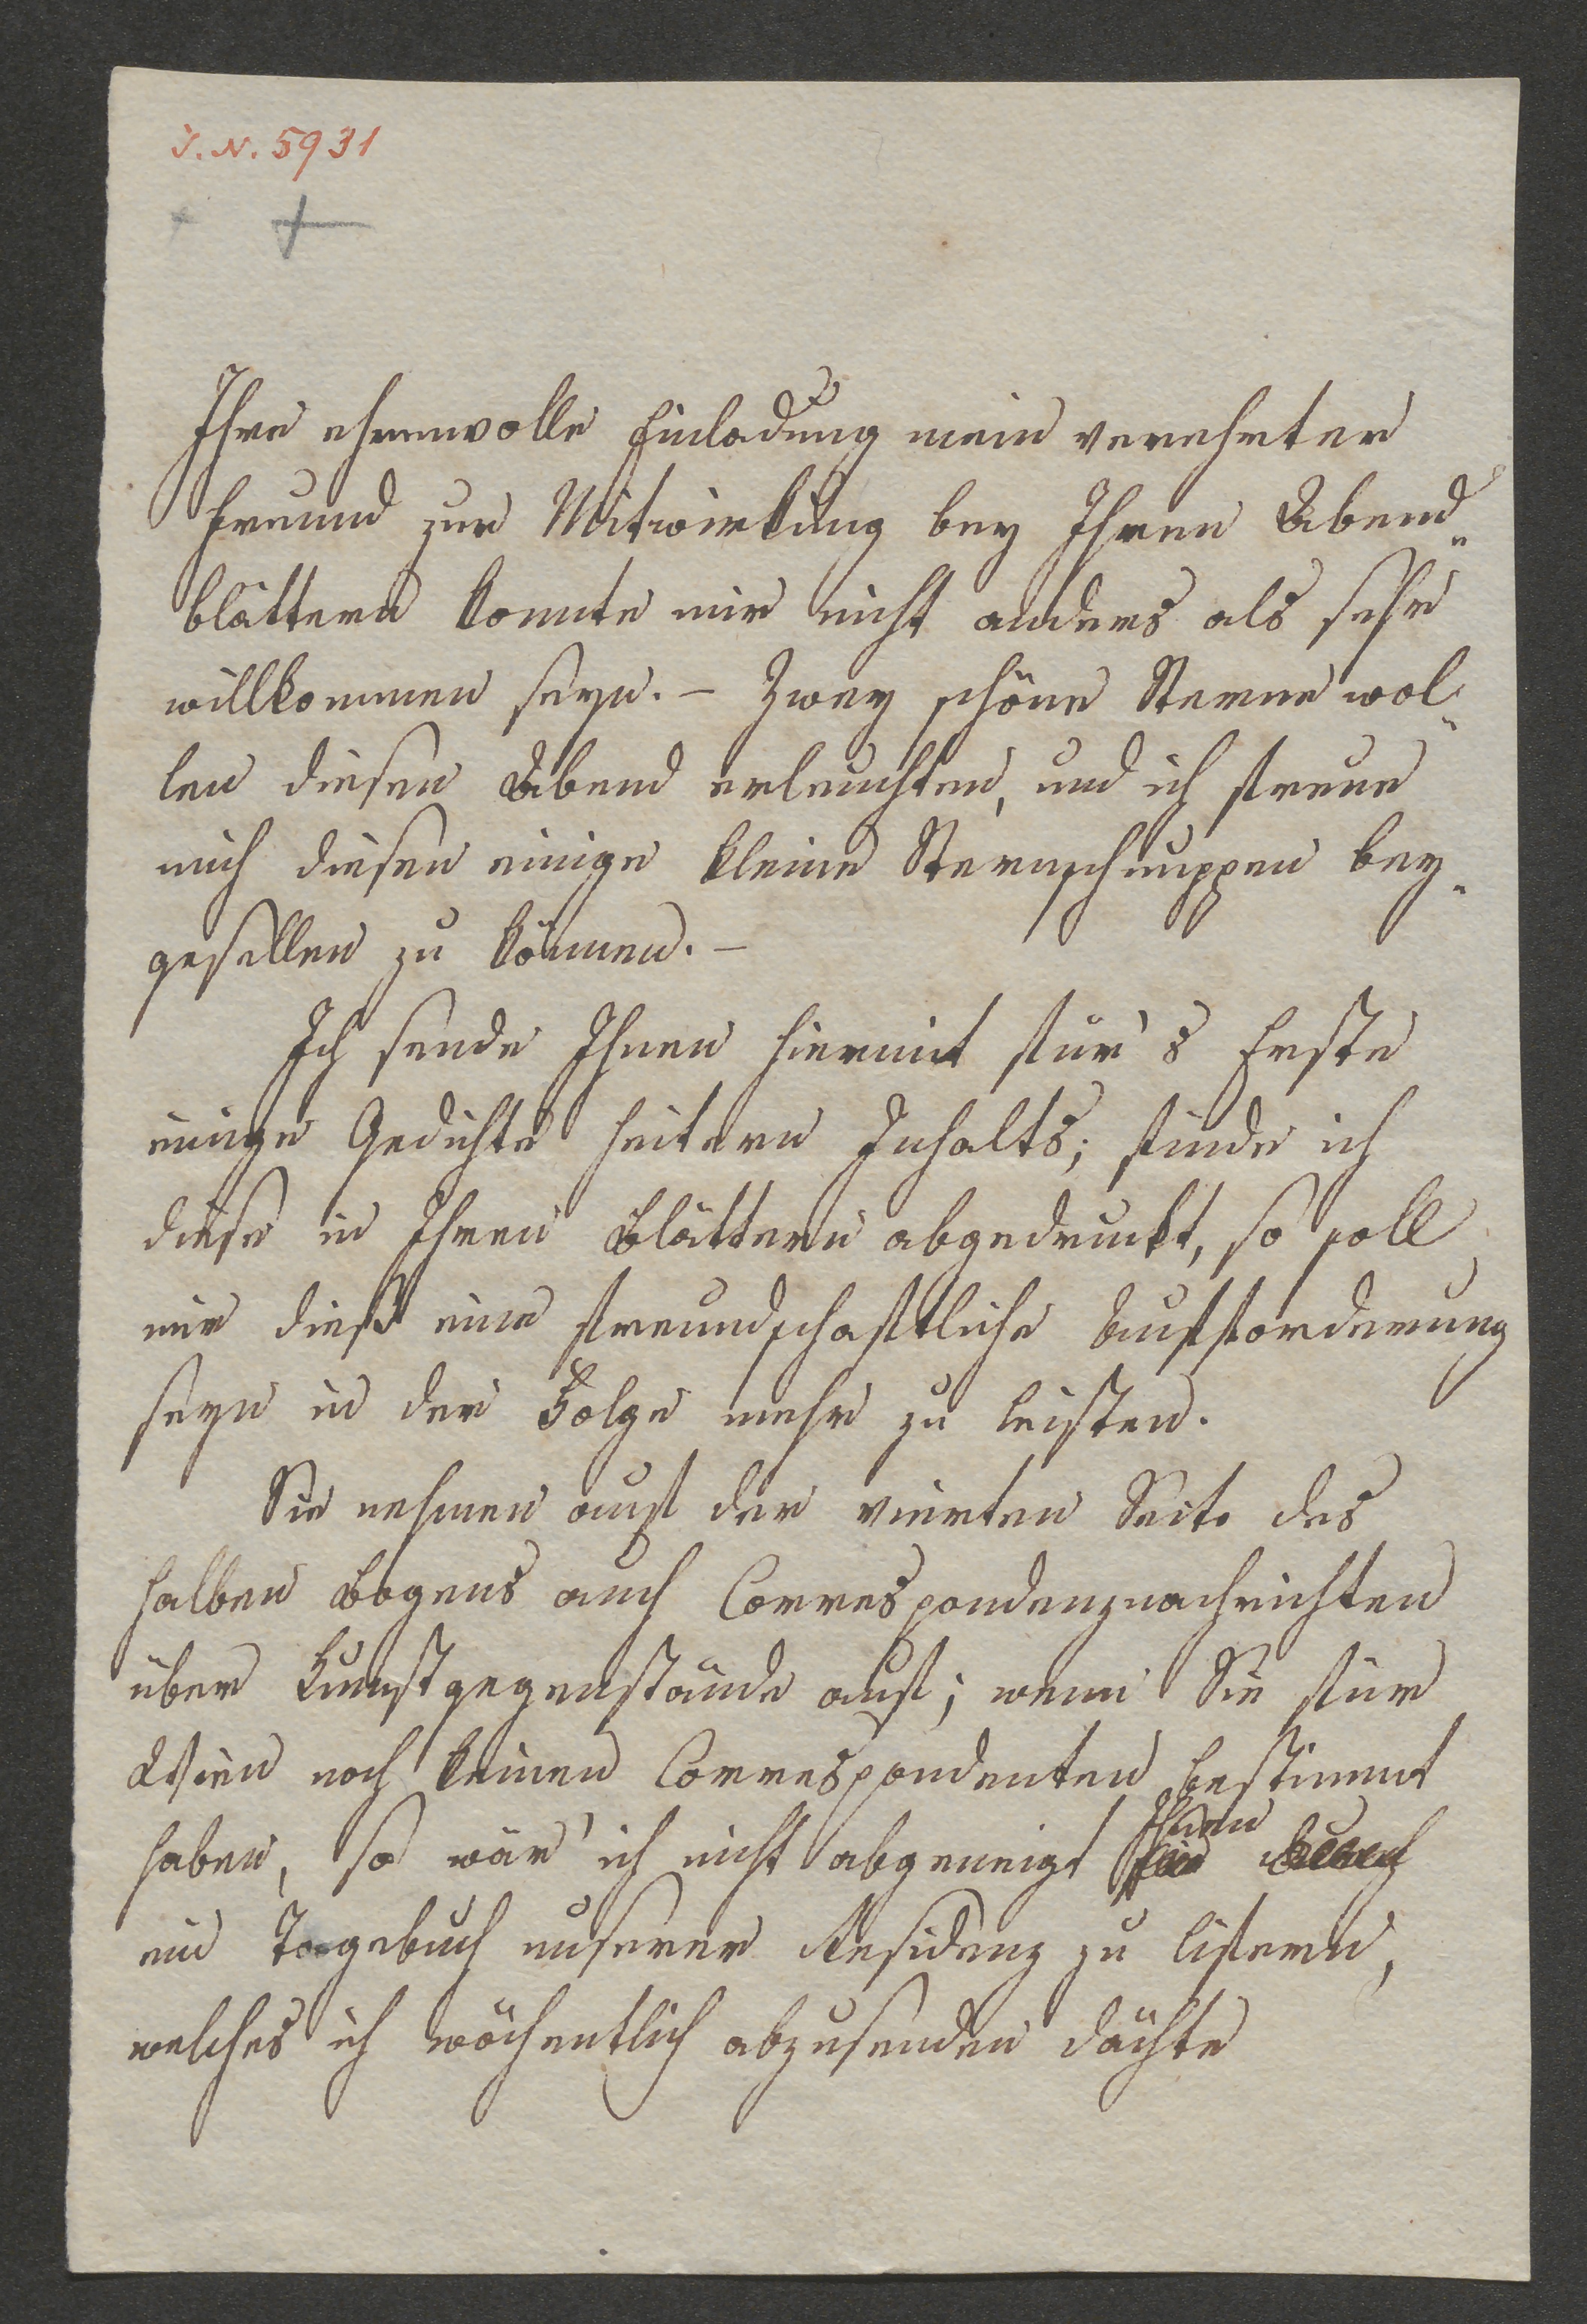 I. N. 5931
Ihre ehrenvolle Einladung mein verehrter
Freund zur Mitwirkung bey Ihren Abend„
blättern konnte mir nicht anders als sehr
willkommen seyn. – Zwey schöne Sterne wol„
len diesen Abend erleuchten, und ich freue
mich diesen einige kleine Sternschnuppen bey„
gesellen zu können. –
Ich sende Ihnen hiermit für's Erste
einige Gedichte heitern Inhalts; finde ich
diese in Ihren Blättern abgedruckt, so soll
mir dieß eine freundschaftliche Aufforderung
seyn in der Folge mehr zu leisten.
Sie nehmen auf der vierten Seite des
halben Bogens auch Correspondenznachrichten
über Kunstgegenstände auf; wenn Sie für
Wien noch keinen Correspondenten bestimmt
haben, so wär' ich nicht abgeneigt Ihnen
ein Tagebuch unserer Residenz zu liefern,
welches ich wöchentlich abzusenden dächte